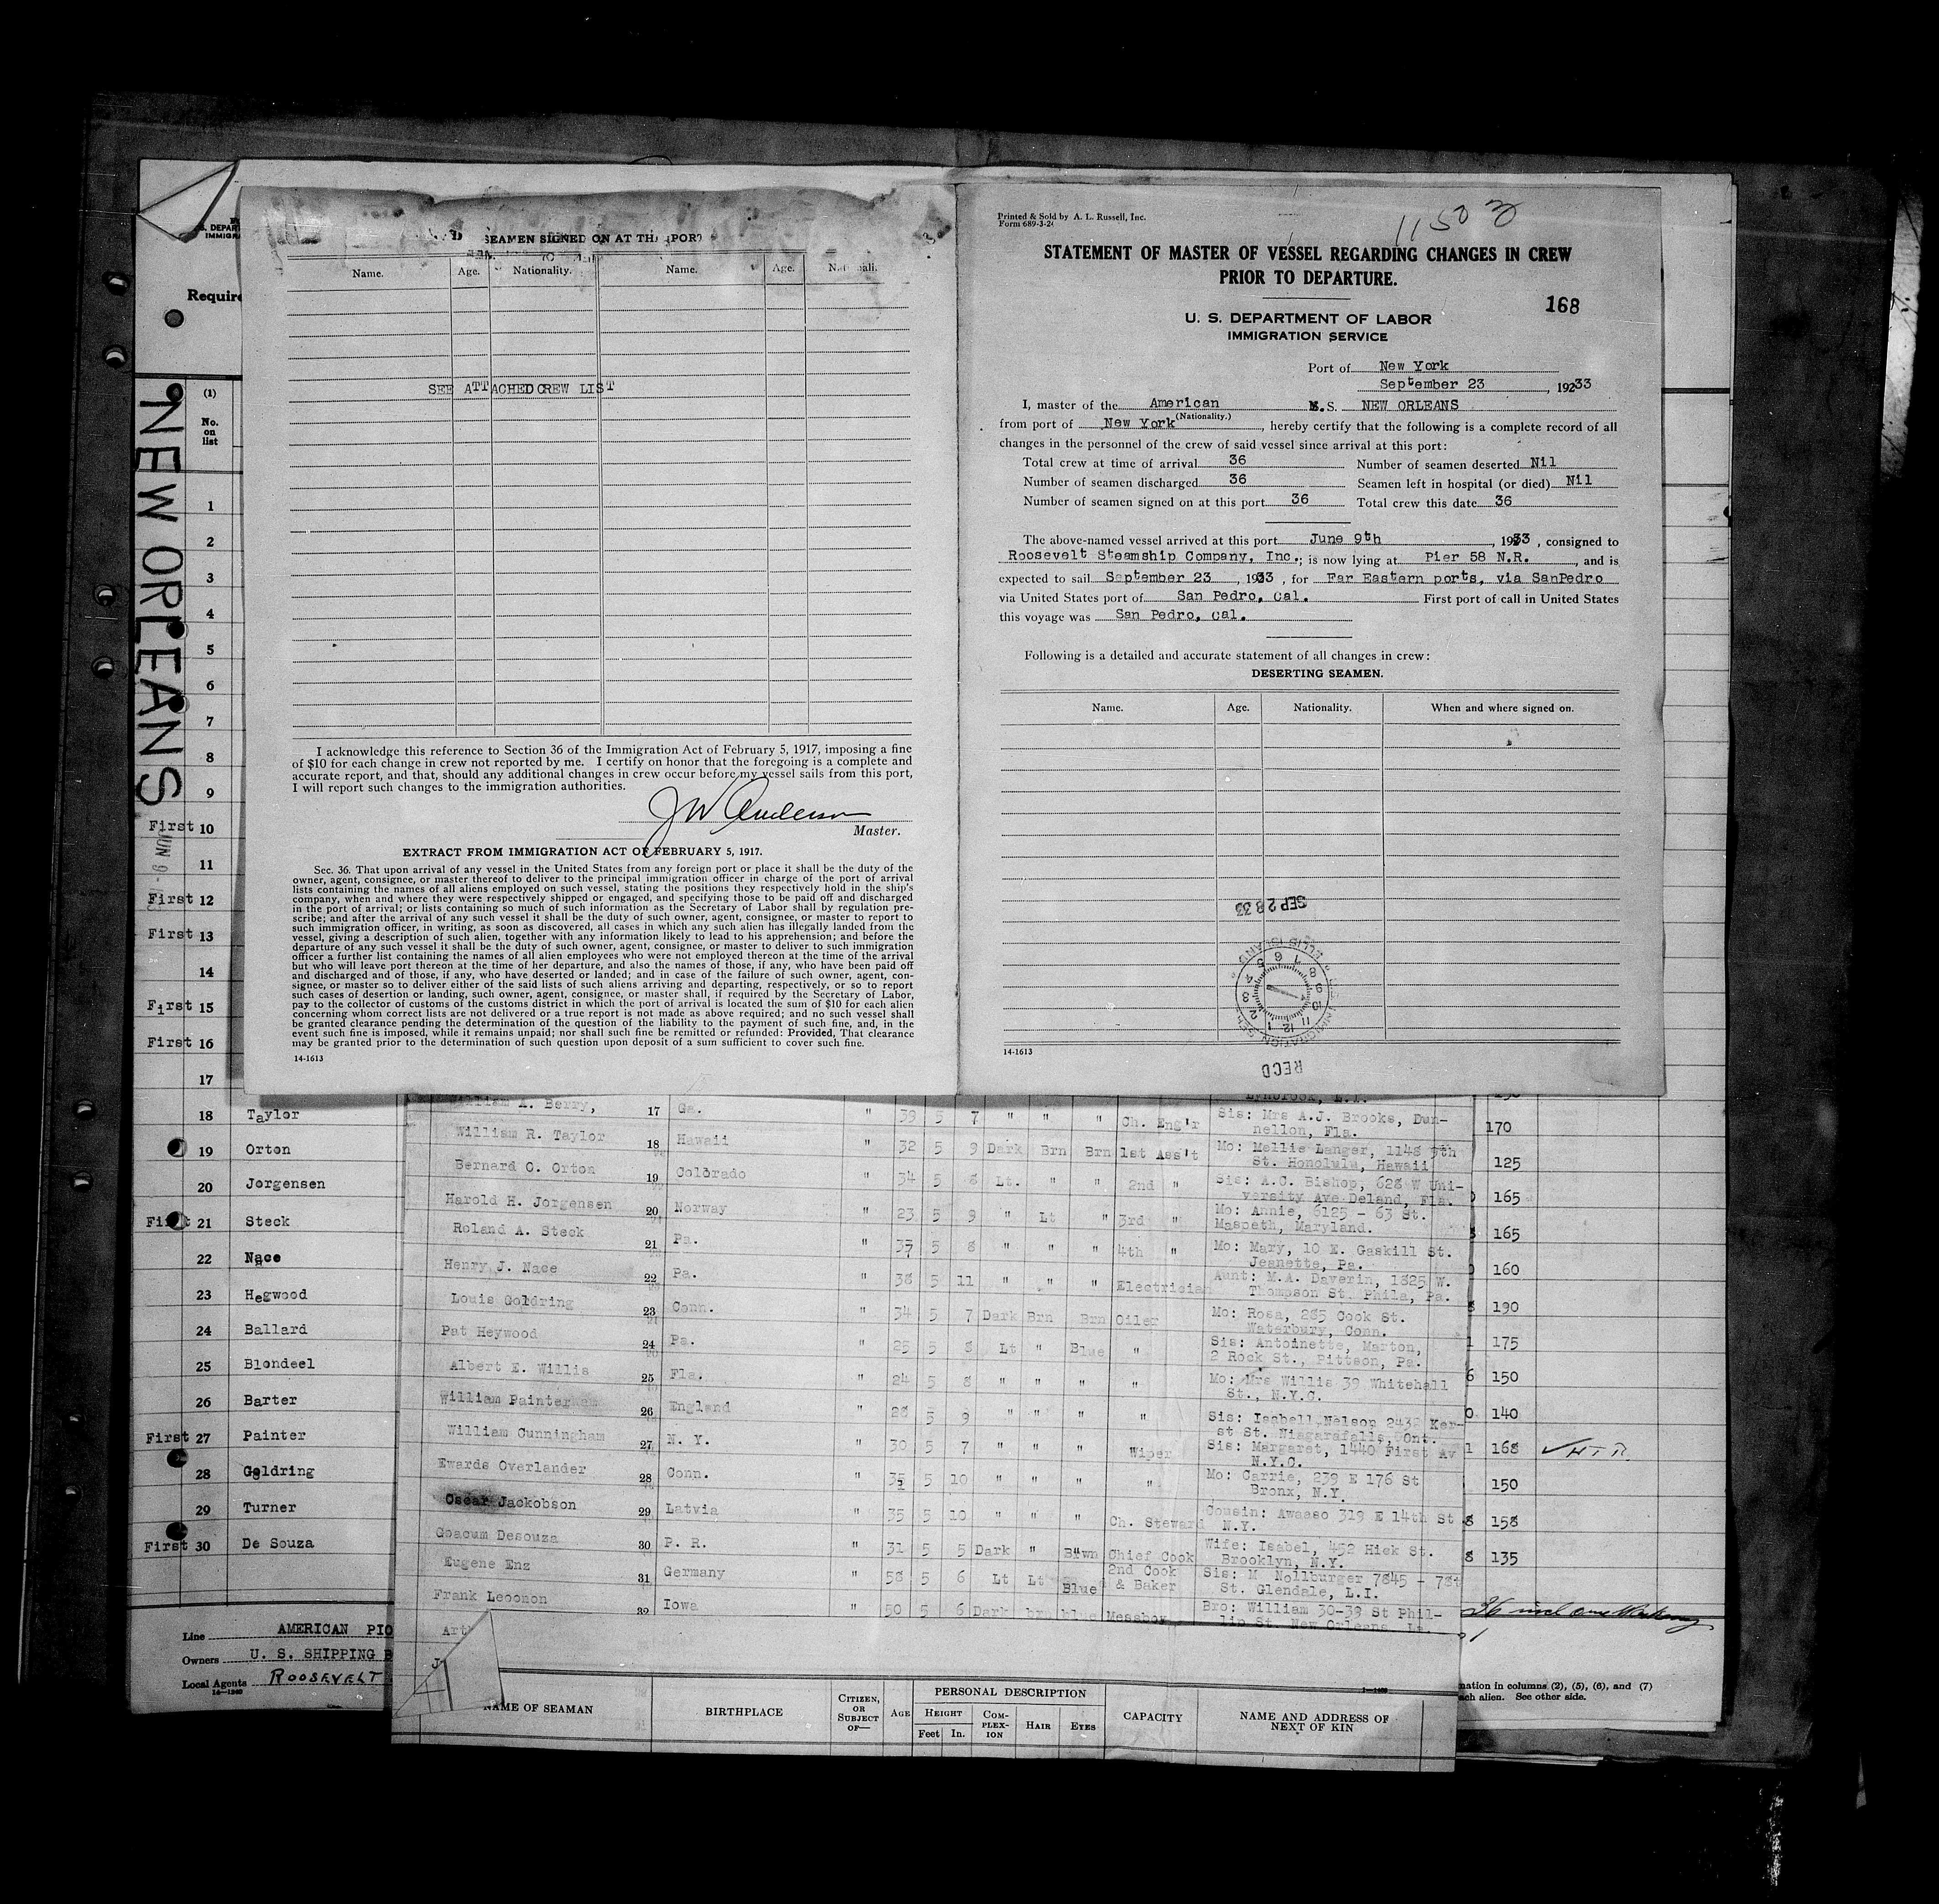 SEAMEN SIGNED ON AT THIS PORT
Name. Age. Nationality. Name. Age.
SEE ATTACHED CREW LIST
I acknowledge this reference to Section 36 of the Immigration Act of February 5, 1917, imposing a fine
of $10 for each change in crew not reported by me. I certify on honor that the foregoing is a complete and
accurate report, and that, should any additional changes in crew occur before my vessel sails from this port,
I will report such changes to the immigration authorities.
J W Anderson
Master.
EXTRACT FROM IMMIGRATION ACT OF FEBRUARY 5, 1917.
Sec. 36. That upon arrival of any vessel in the United States from any foreign port or place it shall be the duty of the
owner, agent, consignee, or master thereof to deliver to the principal immigration officer in charge of the port of arrival
lists containing the names of all aliens employed on such vessel, stating the positions they respectively hold in the ship's
company, when and where they were respectively shipped or engaged, and specifying those to be paid off and discharged
in the port of arrival; or lists containing so much of such information as the Secretary of Labor shall by regulation pre-
scribe; and after the arrival of any such vessel it shall be the duty of such owner, agent, consignee, or master to report to
such immigration officer, in writing, as soon as discovered, all cases in which any such alien has illegally landed from the
vessel, giving a description of such alien, together with any information likely to lead to his apprehension; and before the
departure of any such vessel it shall be the duty of such owner, agent, consignee, or master to deliver to such immigration
officer a further list containing the names of all alien employees who were not employed thereon at the time of the arrival
but who will leave port thereon at the time of her departure, and also the names of those, if any, who have been paid off
and discharged and of those, if any, who have deserted or landed; and in case of the failure of such owner, agent, con-
signee, or master so to deliver either of the said lists of such aliens arriving and departing, respectively, or so to report
such cases of desertion or landing, such owner, agent, consignee, or master shall, if required by the Secretary of Labor,
pay to the collector of customs of the customs district in which the port of arrival is located the sum of $10 for each alien
concerning whom correct lists are not delivered or a true report is not made as above required; and no such vessel shall
be granted clearance pending the determination of the question of the liability to the payment of such fine, and, in the
event such fine is imposed, while it remains unpaid; nor shall such fine be remitted or refunded: Provided, That clearance
may be granted prior to the determination of such question upon deposit of a sum sufficient to cover such fine.
14-1613
Printed & Sold by A. L. Russell, Inc.
Form 689-3-24
11503
STATEMENT OF MASTER OF VESSEL REGARDING CHANGES IN CREW
PRIOR TO DEPARTURE.
168
U. S. DEPARTMENT OF LABOR
IMMIGRATION SERVICE
Port of New York
September 23, 1933
I, master of the American M.S. NEW ORLEANS
(Nationality.)
from port of New York, hereby certify that the following is a complete record of all
changes in the personnel of the crew of said vessel since arrival at this port:
Total crew at time of arrival 36 Number of seamen deserted Nil
Number of seamen discharged 36 Seamen left in hospital (or died) Nil
Number of seamen signed on at this port 36 Total crew this date 36
The above-named vessel arrived at this port June 9th, 1933, consigned to
Roosevelt Steamship Company, Inc.; is now lying at Pier 58 N.R., and is
expected to sail September 23, 1933, for Far Eastern ports, via SanPedro
via United States port of San Pedro, Cal. First port of call in United States
this voyage was San Pedro, Cal.
Following is a detailed and accurate statement of all changes in crew:
DESERTING SEAMEN.
Name. Age. Nationality. When and where signed on.
SEP 28 33
ELLIS ISLAND
RECD
14-1613
NEW ORLEANS
Require
(1)
No.
on
list
1
2
3
4
5
6
7
8
9
First 10
11
First 12
First 13
14
First 15
First 16
17
18 Taylor
19 Orton
20 Jorgensen
First 21 Steck
22 Nace
23 Hegwood
24 Ballard
25 Blondeel
26 Barter
First 27 Painter
28 Goldring
29 Turner
First 30 De Souza
Line AMERICAN PIO
Owners U. S. SHIPPING B
Local Agents ROOSEVELT
William A. Berry, 17 Ga. " 39 5 7 " " " Ch. Eng'r Sis: Mrs A.J. Brooks, Dun-
nellon, Fla. 170
William R. Taylor 18 Hawaii " 32 5 9 Dark Brn Brn 1st Ass't Mo: Mellie Langer, 1148 9th
St. Honolulu, Hawaii 125
Bernard O. Orton 19 Colorado " 34 5 8 Lt. " " 2nd " Sis: A.C. Bishop, 628 W Uni-
versity Ave Deland, Fla. 165
Harold H. Jorgensen 20 Norway " 23 5 9 " Lt " 3rd " Mo: Annie, 6125 - 63 St.
Maspeth, Maryland. 165
Roland A. Steck 21 Pa. " 37 5 8 " " " 4th " Mo: Mary, 10 E. Gaskill St.
Jeanette, Pa. 160
Henry J. Nace 22 Pa. " 38 5 11 " " " Electrician Aunt: M.A. Daverin, 1825 W.
Thompson St. Phila, Pa. 190
Louis Goldring 23 Conn. " 34 5 7 Dark Brn Brn Oiler Mo: Rosa, 285 Cook St.
Waterbury, Conn. 175
Pat Heywood 24 Pa. " 25 5 8 Lt " Blue " Sis: Antoinette, Marton,
2 Rock St., Pittson, Pa. 150
Albert E. Willis 25 Fla. " 24 5 8 " " " " Mo: Mrs Willis 39 Whitehall
St., N.Y.C. 140
William Painter 26 England " 28 5 9 " " " " Sis: Isabell Nelson 2432 Ker-
st St. Niagarafalls, Ont. 168
William Cunningham 27 N. Y. " 30 5 7 " " " Wiper Sis: Margaret, 1440 First Av
N.Y.C. 150
Ewards Overlander 28 Conn. " 35 5 10 " " " " Mo: Carrie, 239 E 176 St
Bronx, N.Y.
Oscar Jackobson 29 Latvia " 35 5 10 " " " Ch. Steward Cousin: Awasso 319 E 14th St
N.Y. 158
Goacum Desouza 30 P. R. " 31 5 5 Dark " Brwn Chief Cook Wife: Isabel, 452 Hick St.
Brooklyn, N.Y. 135
Eugene Enz 31 Germany " 58 5 6 Lt Lt Blue 2nd Cook
& Baker Sis: M Nollburger 7845 - 78t
St. Glendale, L.I.
Frank Leoonon 32 Iowa " 50 5 6 Dark brn blue Messboy Bro: William 30-39 St Phil-
lip St. New Orleans, La.
NAME OF SEAMAN BIRTHPLACE CITIZEN, OR SUBJECT OF— AGE PERSONAL DESCRIPTION CAPACITY NAME AND ADDRESS OF NEXT OF KIN
HEIGHT COM-PLEX-ION HAIR EYES
Feet In.
mation in columns (2), (5), (6), and (7)
ach alien. See other side.